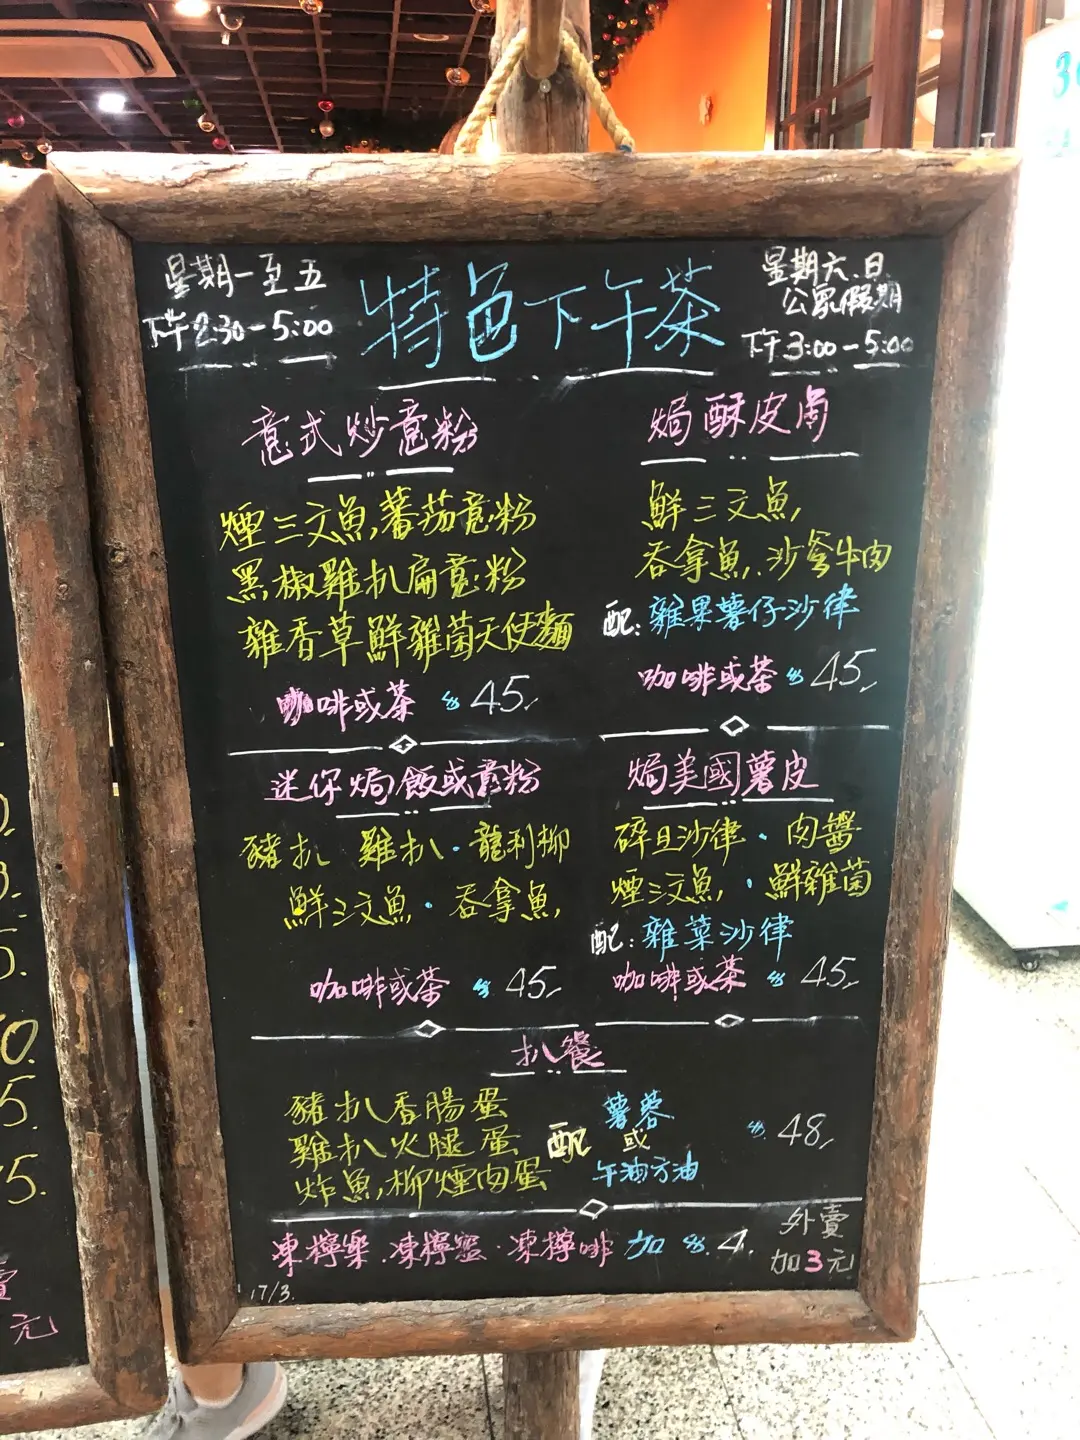 星期一至五
下午2:30-5:00
特色下午茶
星期六.日
公眾假期
下午3:00-5:00
意式炒意粉
煙三文魚,蕃茄意粉
黑椒雞扒扁意粉
雜香草鮮雜菌天使麵
咖啡或茶 $45,
焗酥皮角
鮮三文魚,
吞拿魚.沙爹牛肉
配:雜果薯仔沙律
咖啡或茶 $45,
迷你焗飯或意粉
豬扒 雞扒·龍利柳
鮮三文魚·吞拿魚,
咖啡或茶 $45,
焗美國薯皮
碎旦沙律·肉醬
煙三文魚·鮮雜菌
配:雜菜沙律
咖啡或茶 $45,
扒餐
豬扒香腸蛋
雞扒火腿蛋
炸魚柳煙肉蛋
配
薯蓉
或
牛油方油
$48,
凍檸樂.凍檸蜜·凍檸啡 加 $4.
外賣
加3元
17/3.